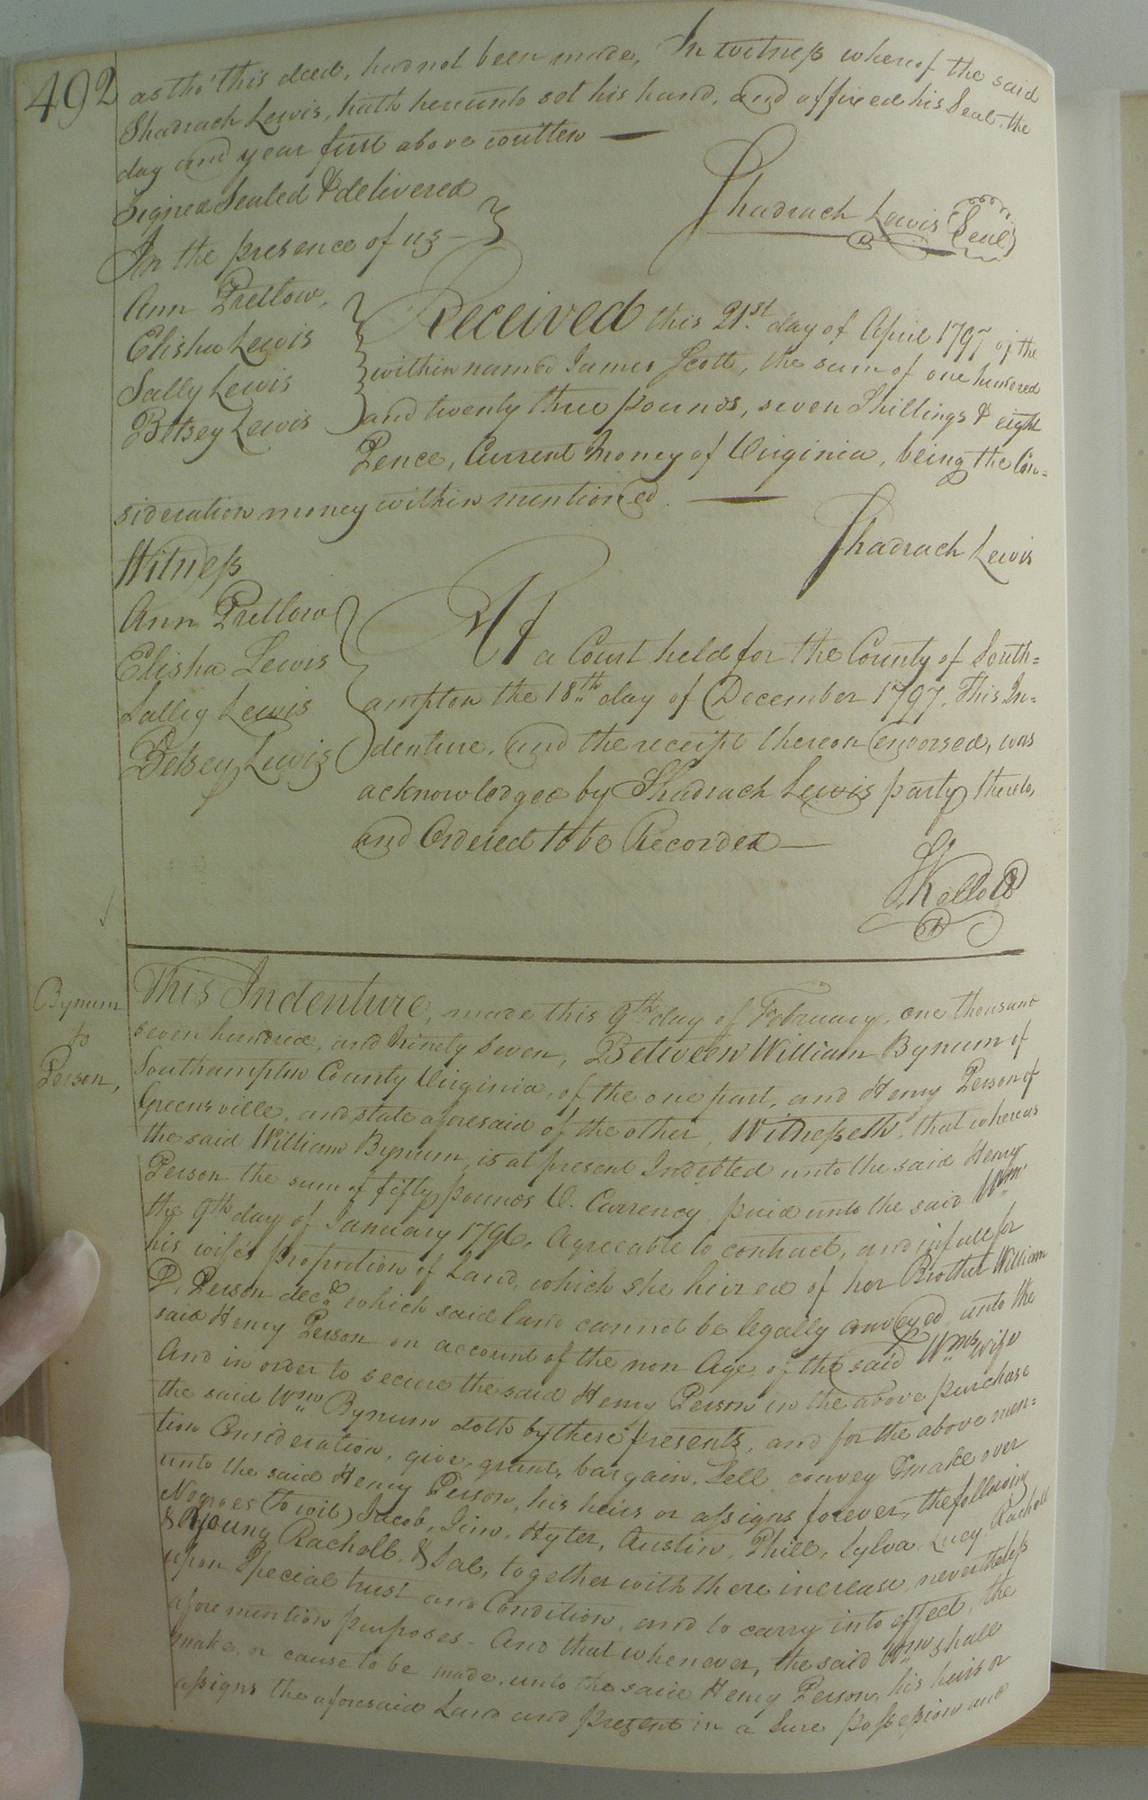 492
as tho' this deed, had not been made, In witness whereof the said
Shadrach Lewis, hath hereunto set his hand, and affixed his Seal, the
day and year first above written —
Signed Sealed & delivered
In the presence of us —
Shadrach Lewis (Seal)
Ann Pretlow,
Elisha Lewis
Sally Lewis
Betsey Lewis
Received this 21st day of April 1797 of the
within named James Scott, the sum of one hundred
and twenty three pounds, seven Shillings & eight
Pence, Current Money of Virginia, being the Con=
sideration money within mentioned. —
Shadrach Lewis
Witness
Ann Pretlow
Elisha Lewis
Salley Lewis
Betsey Lewis
At a Court held for the County of South=
ampton the 18th day of December 1797. This In=
denture, and the receipt thereon endorsed, was
acknowledged by Shadrach Lewis party thereto,
and Ordered to be Recorded —
Bynum
to
Person,
This Indenture, made this 9th day of February, one thousand
seven hundred, and Ninety seven, Between William Bynum of
Southampton County Virginia, of the one part, and Henry Person of
Greensville, and state aforesaid of the other, Witnesseth, that whereas
the said William Bynum, is at present Indebted unto the said Henry
Person the sum of fifty pounds V. Currency, paid unto the said Wm
the 9th day of January 1796. Agreeable to contract, and in full for
his wife's proportion of Land, which she heired of her Brother William
P. Person decd. which said land cannot be legally conveyed, unto the
said Henry Person on account of the non Age, of the said Wms. wife
And in order to secure the said Henry Person in the above purchase
the said Wm Bynum doth by these presents, and for the above men=
tion Consideration, give, grant, bargain, Sell, convey & make over
unto the said Henry Person, his heirs or assigns forever, the following
Negroes (to wit) Jacob, Jim, Hyter, Austin, Phill, Sylva, Lucy, Rachell
& Young Rachell, & Sal, together with there increase, nevertheless
upon Special trust and Condition, and to carry into effect, the
afore mention purposes. And that whenever, the said Wm shall
make, or cause to be made, unto the said Henry Person, his heirs or
assigns the aforesaid Land and present in a Sure possession and